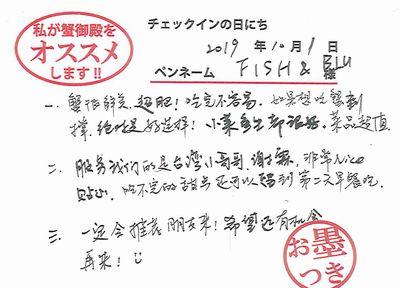 私が蟹御殿を
オススメ
します!!
チェックインの日にち
2019 年 10 月 1 日
ペンネーム FISH & BLU 様
一. 蟹很鮮美, 超肥! 吃完不容易. 如果想吃蟹到
撐, 絕對是好選擇! 小菜多主都很好. 菜品超值.
二. 服务我们的是台湾小哥哥, 非常Nice
貼心. 吃不完的甜点还可以留到第二天早餐吃.
三. 一定会推荐朋友来! 希望还有机会
再来!
お墨
つき